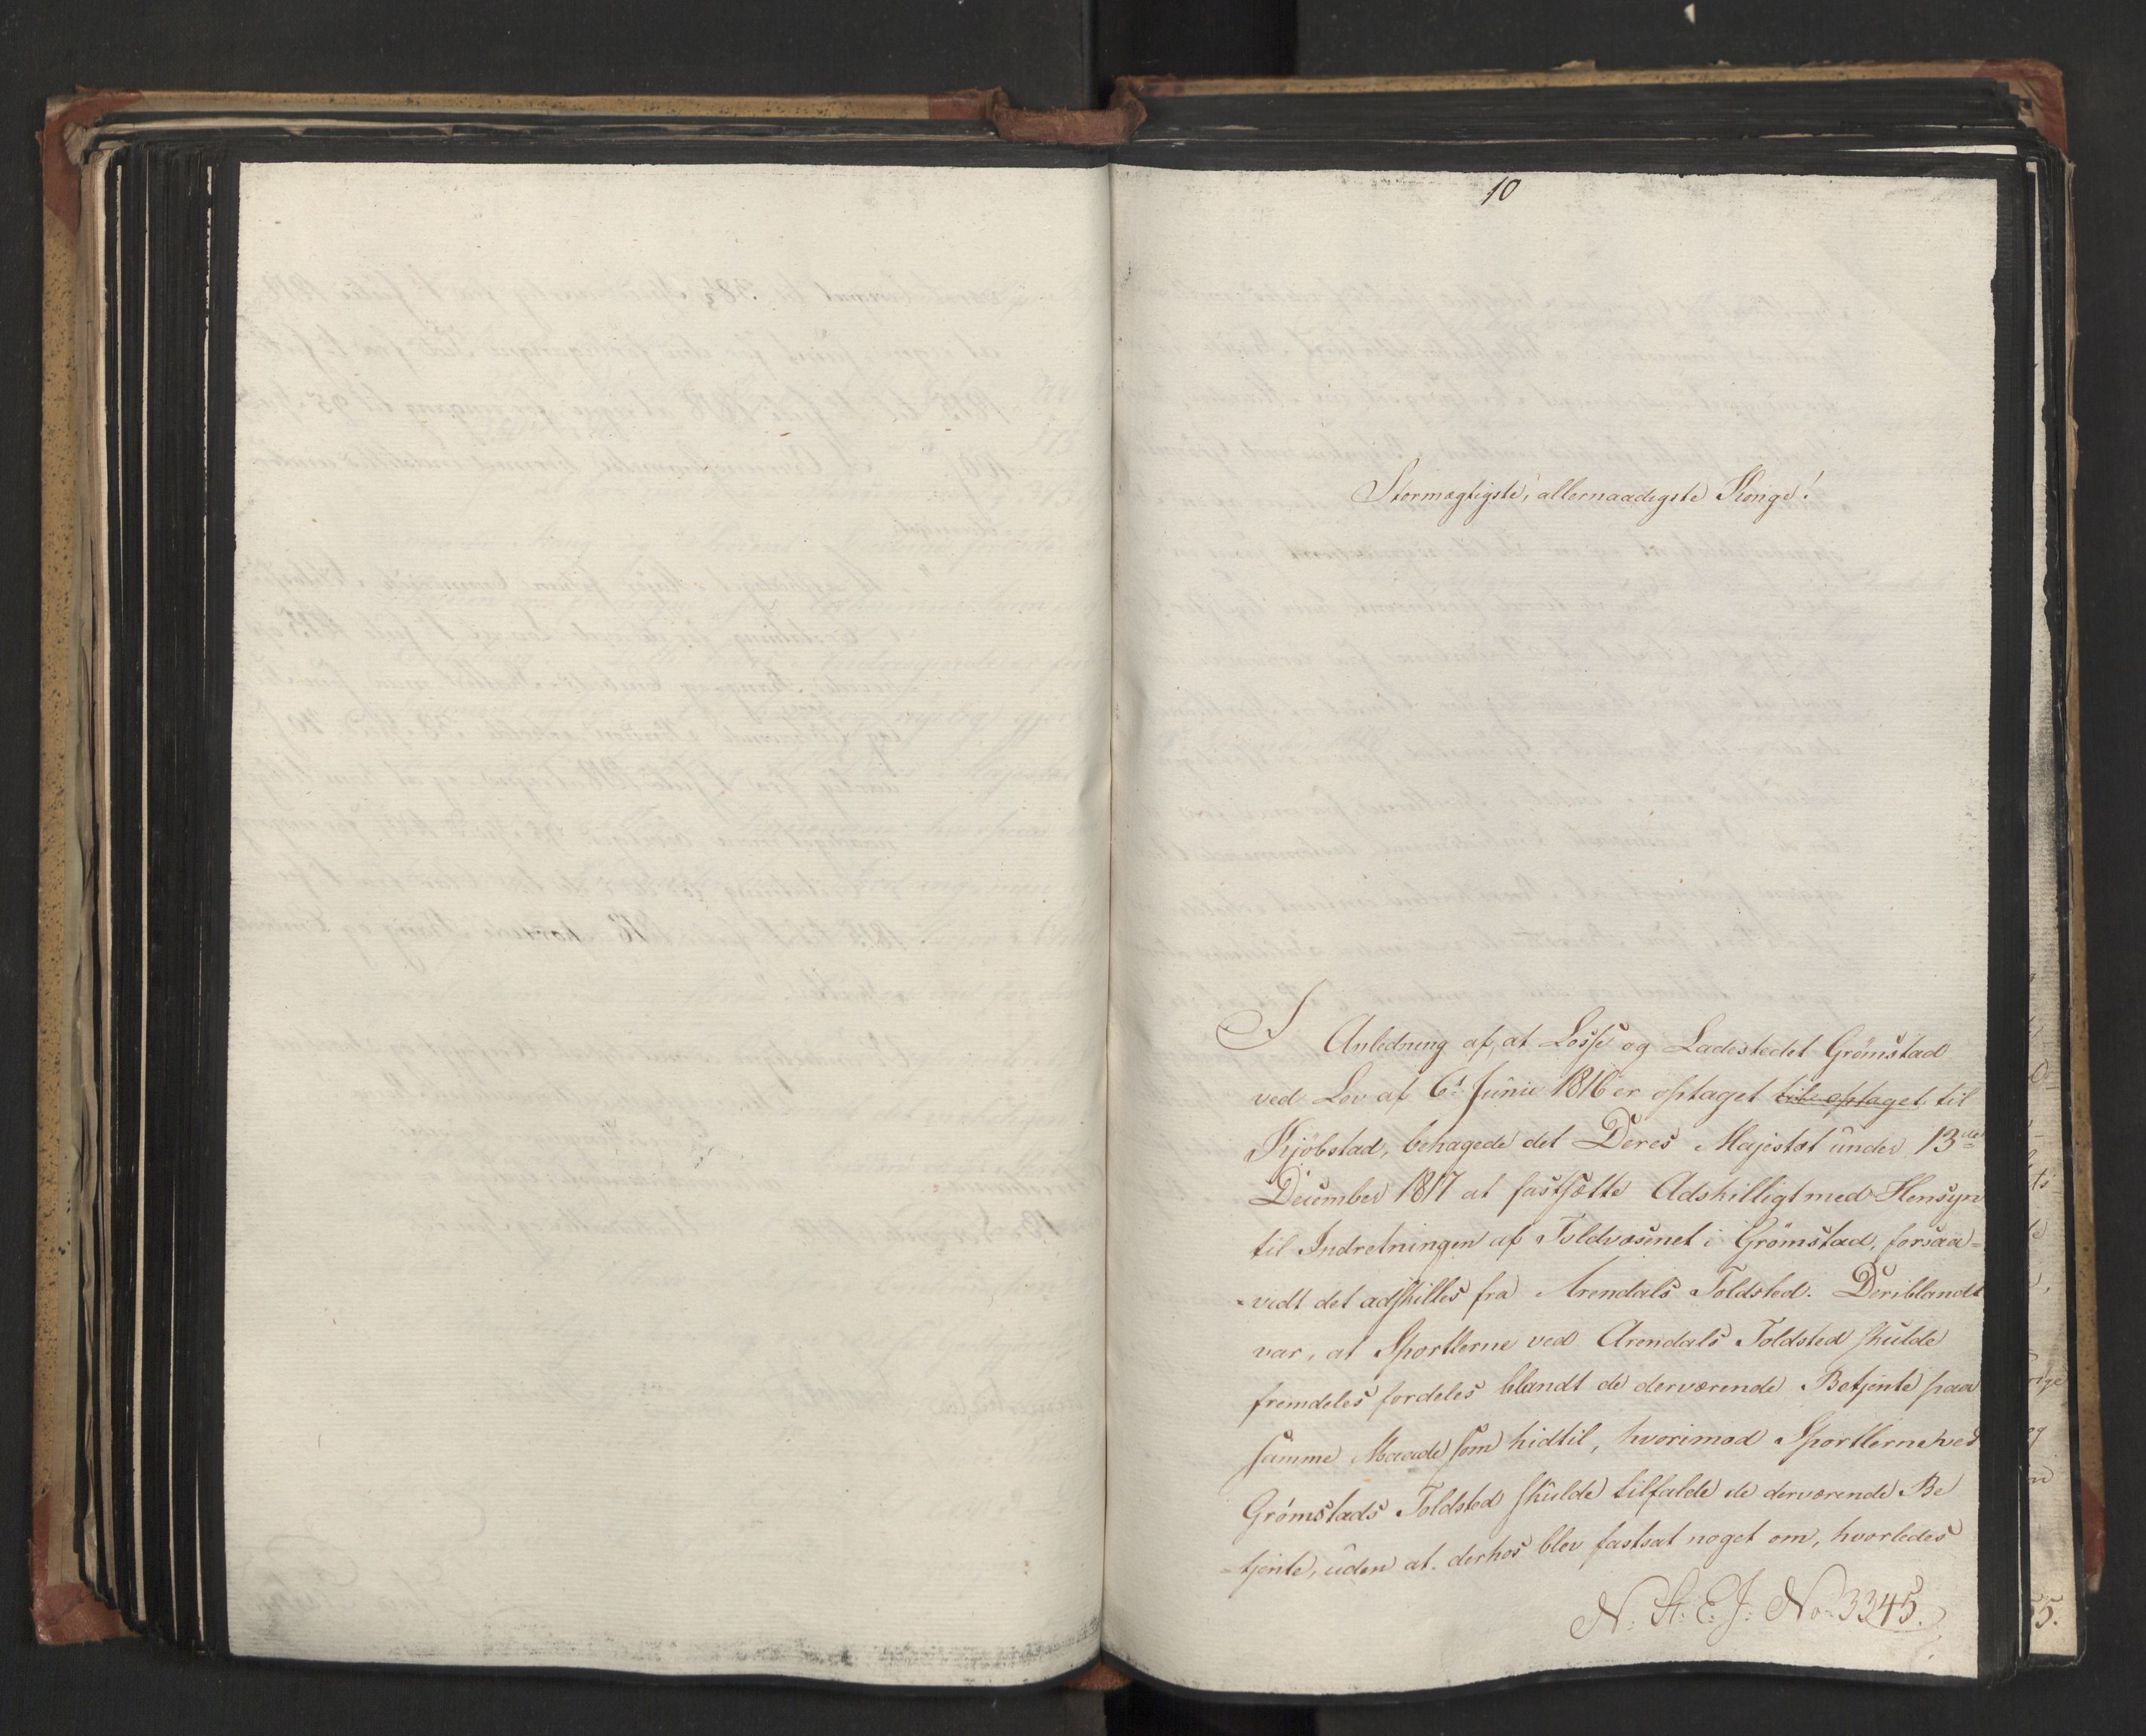 10
Stormægtigste, allernaadigste Konge!
I Anledning af, at Losse og Ladestedet Grömstad
ved Lov af 6t Junii 1816 er optaget til optaget til
Kjöbstad, behagede det Deres Majestæt under 13de
December 1817 at fastsætte Adskilligt med Hensyn
til Indretningen af Toldvæsenet i Grömstad, forsaa-
-vidt det adskilles fra Arendals Toldsted. Deriblandt
var, at Sportlerne ved Arendals Toldsted skulde
fremdeles fordeles blandt de derværende Betjente paa
samme Maade som hidtil, hvorimod Sportlerne ved
Grömstads Toldsted skulde tilfalde de derværende Be
-tjente, uden at derhos blev fastsat noget om, hvorledes
N. St. E. J. No. 3345.